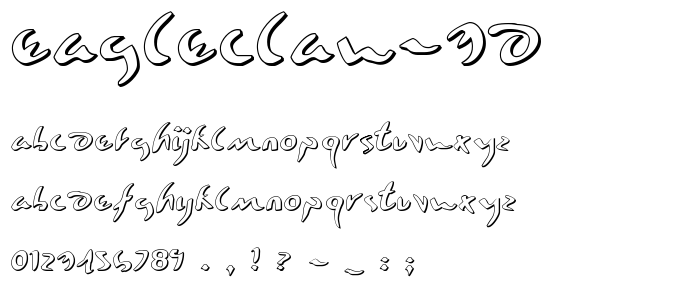 eagleclaw-3D
abcdefghijklmnopqrstuvwxyz
abcdefghijklmnopqrstuvwxyz
0123456789 . , ! ? - _ : ;